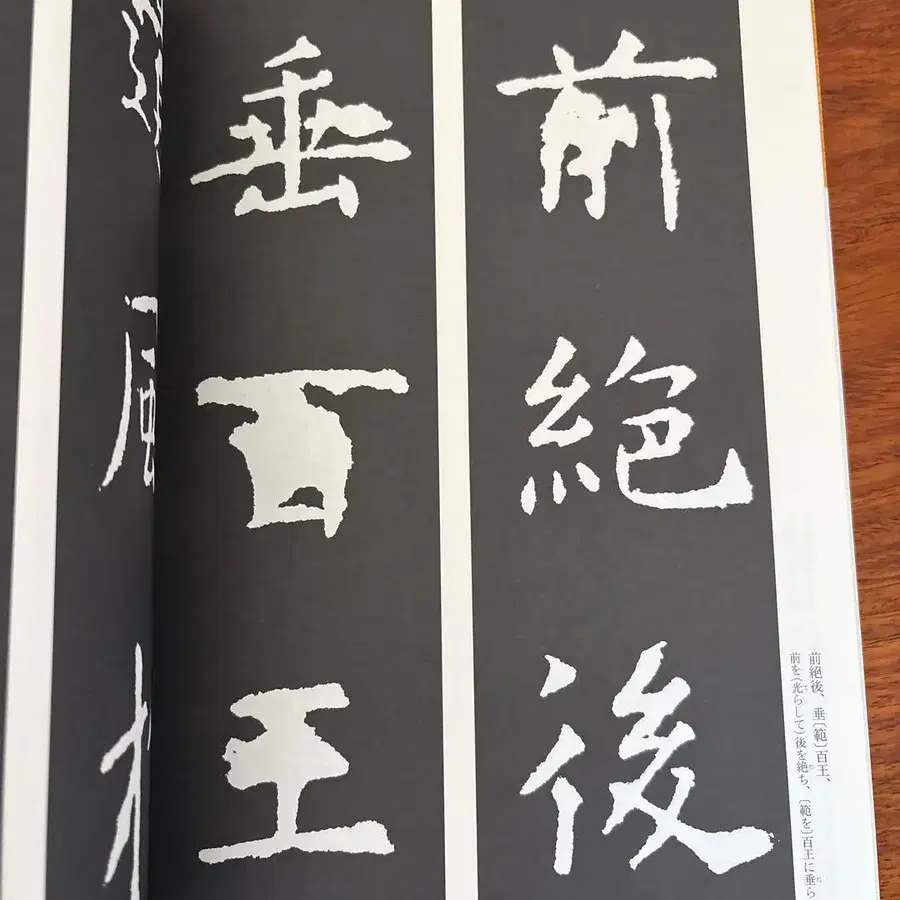 前絕後
垂百王
風
前絕後、垂〔範〕百王、
前を(光らして)後を絶ち、〔範を〕百王に垂ら